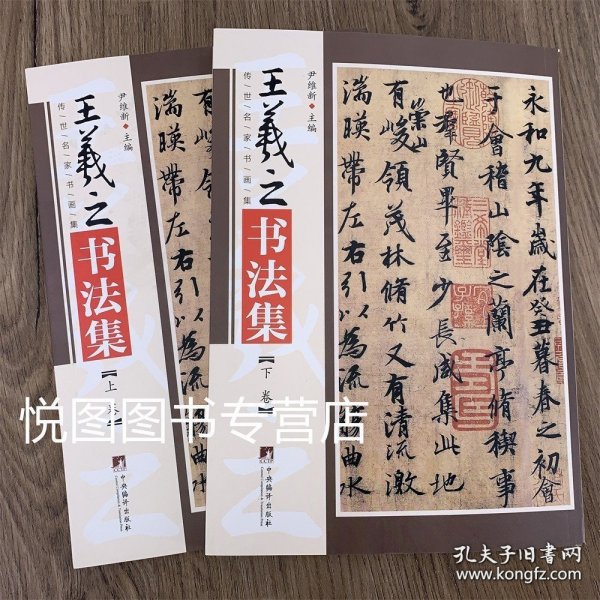 王羲之
书法集
【上卷】
传世名家书画集
尹维新·主编
中央编译出版社
王羲之
书法集
【下卷】
传世名家书画集
尹维新·主编
中央编译出版社
Central Compilation & Translation Press
永和九年歲在癸丑暮春之初會
于會稽山陰之蘭亭脩稧事
也羣賢畢至少長咸集此地
有崇山峻領茂林脩竹又有清流激
湍暎帶左右引以為流觴曲水
有峻領
湍暎帶左右引以為流觴曲水
悦图图书专营店
孔夫子旧书网
www.kongfz.com